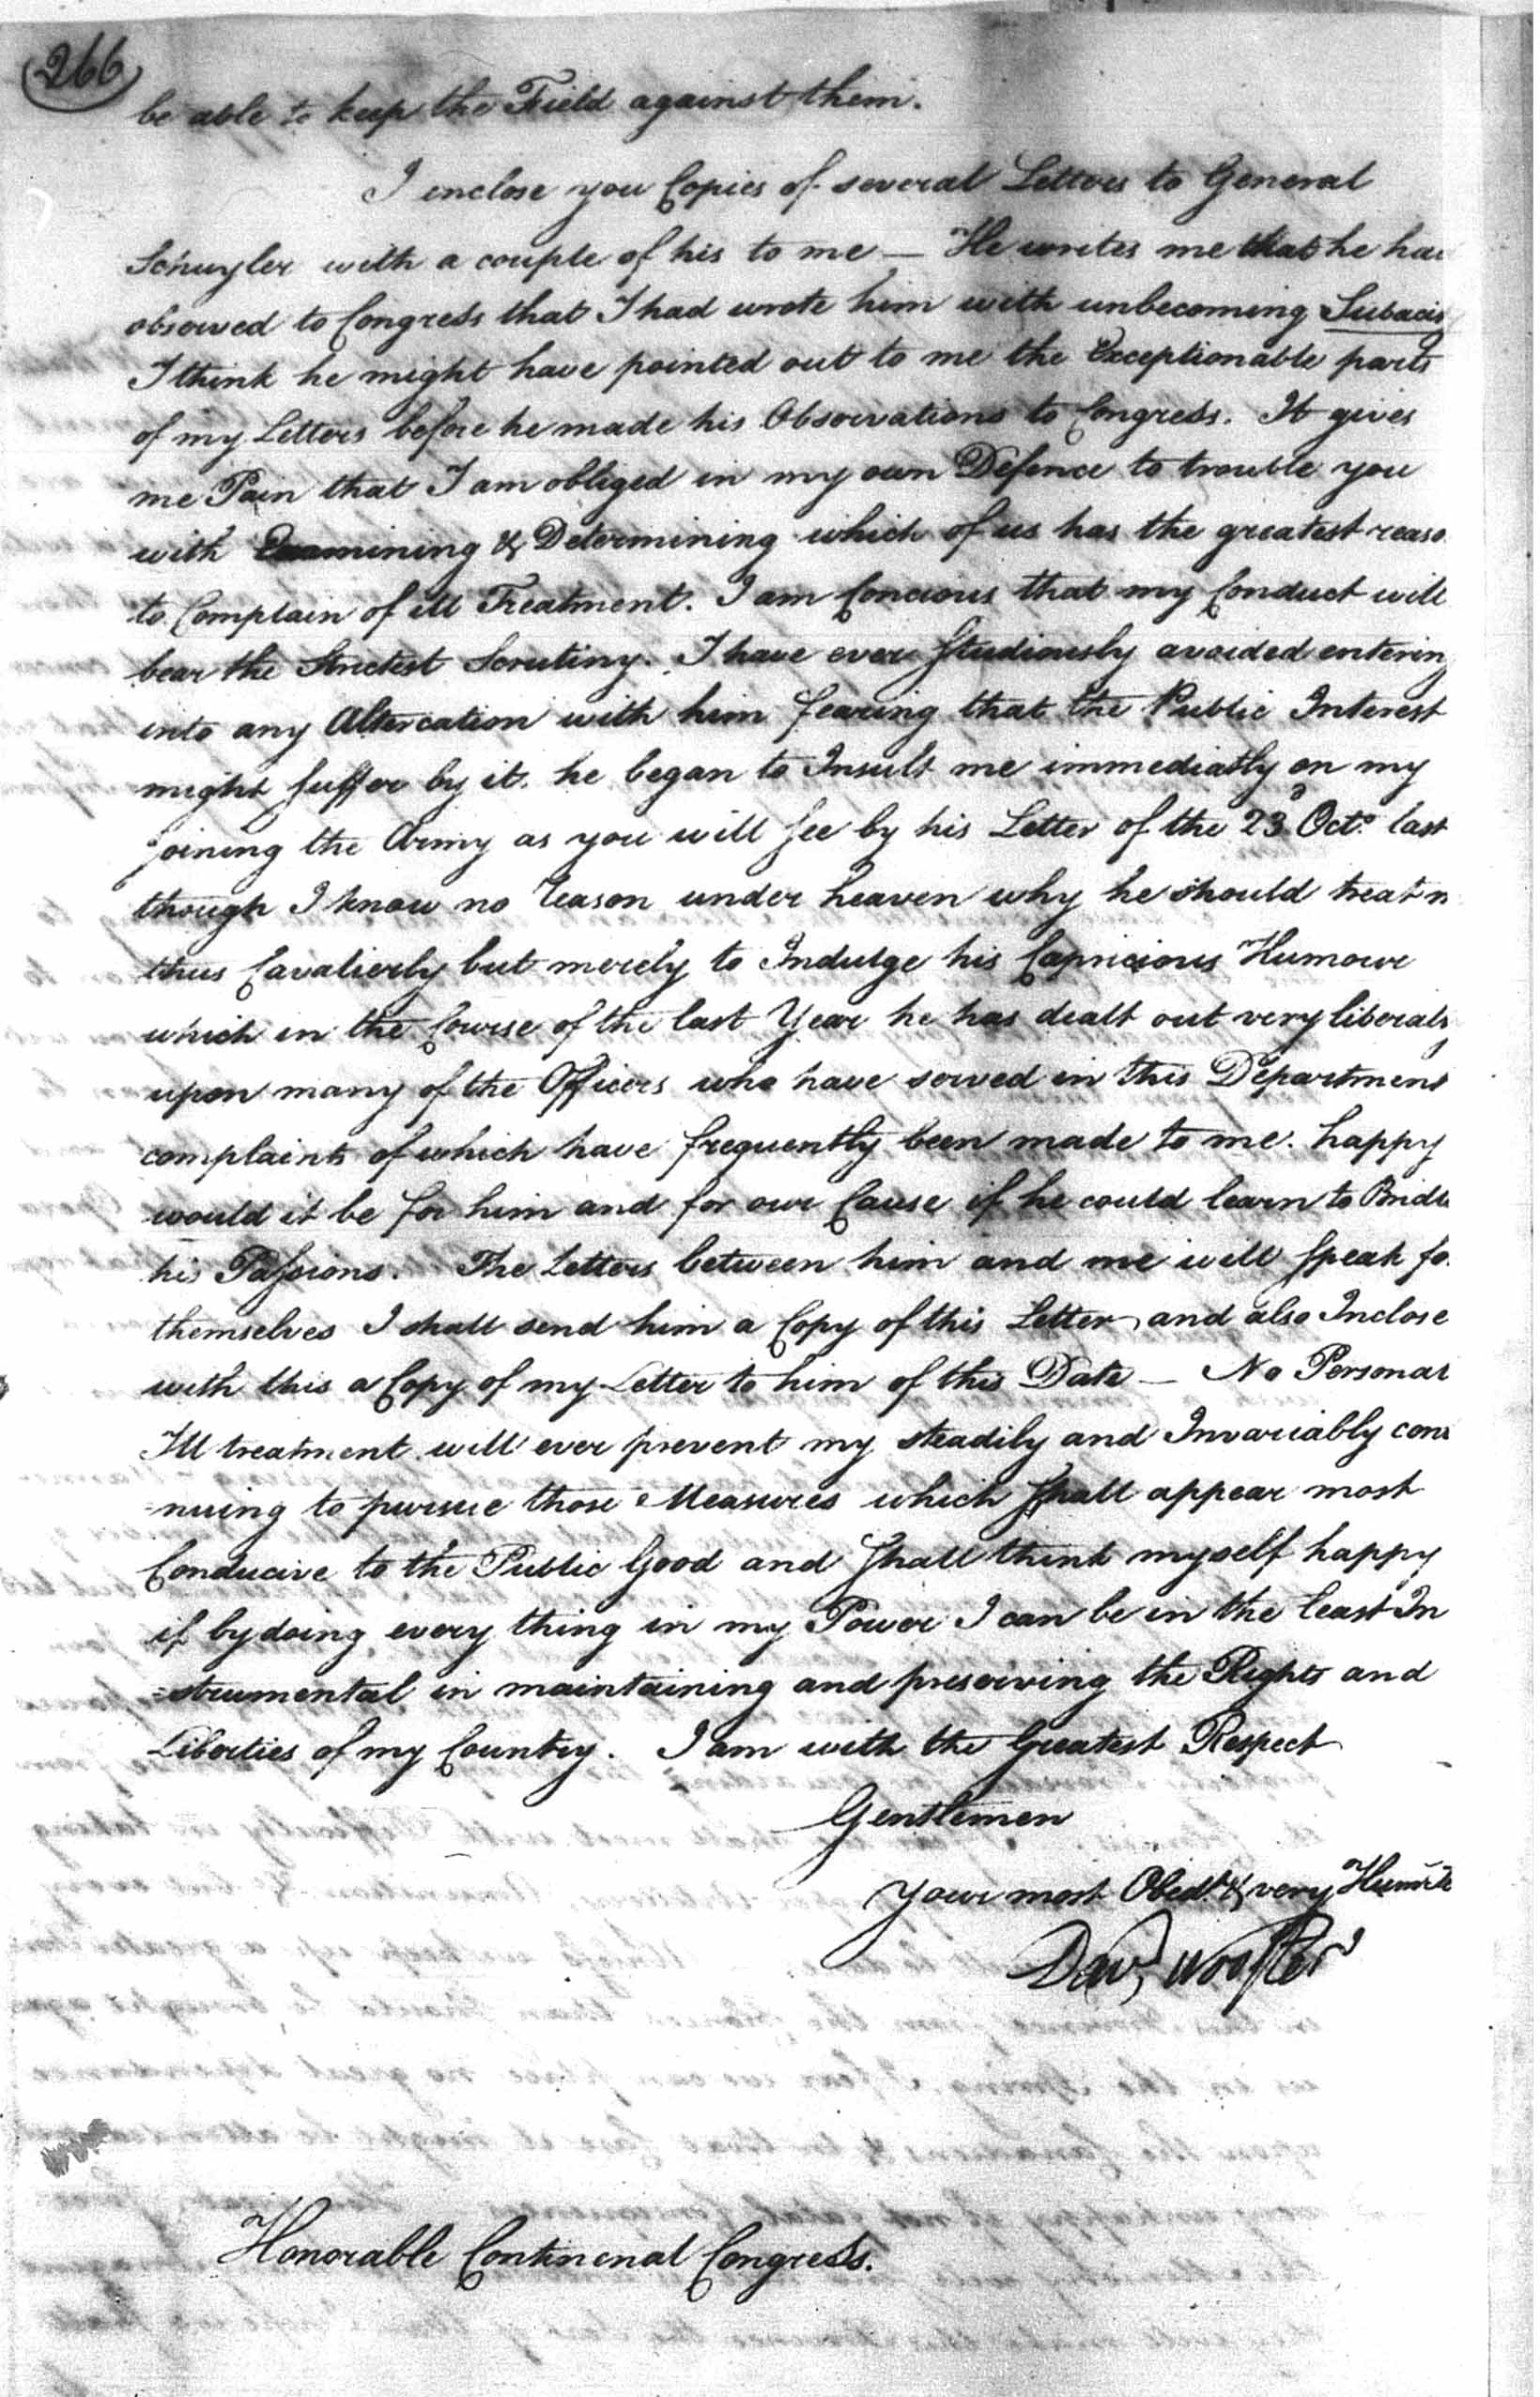 266
be able to keep the Field against them.
I enclose you Copies of several Letters to General
Schuyler with a couple of his to me — He writes me that he had
observed to Congress that I had wrote him with unbecoming Subacid
I think he might have pointed out to me the Exceptionable parts
of my Letters before he made his Observations to Congress. It gives
me Pain that I am obliged in my own Defence to trouble you
with Examining & Determining which of us has the greatest reaso
to Complain of ill Treatment. I am Concious that my Conduct will
bear the Strictest Scrutiny. I have ever Studiously avoided entering
into any Altercation with him fearing that the Public Interest
might suffer by it. he began to Insult me immediatly on my
joining the Army as you will see by his Letter of the 23d Octo last
though I know no reason under heaven why he should treat m
thus Cavalierly but merely to Indulge his Capricious Humour
which in the Course of the last Year he has dealt out very liberaly
upon many of the Officers who have served in this Department
complaints of which have frequently been made to me. happy
would it be for him and for our Cause if he could learn to Bridle
his Passions. The Letters between him and me will speak fo
themselves I shall send him a Copy of this Letter, and also Inclose
with this a Copy of my Letter to him of this Date — No Personal
Ill treatment will ever prevent my steadily and Invariably conti
=nuing to pursue those Measures which shall appear most
Conducive to the Public Good and shall think myself happy
if by doing every thing in my Power I can be in the least In
=strumental in maintaining and preserving the Rights and
Liberties of my Country. I am with the Greatest Respect
Gentlemen
Your most Obedt & very Humble
Davd Wooster
Honorable Continenal Congress.